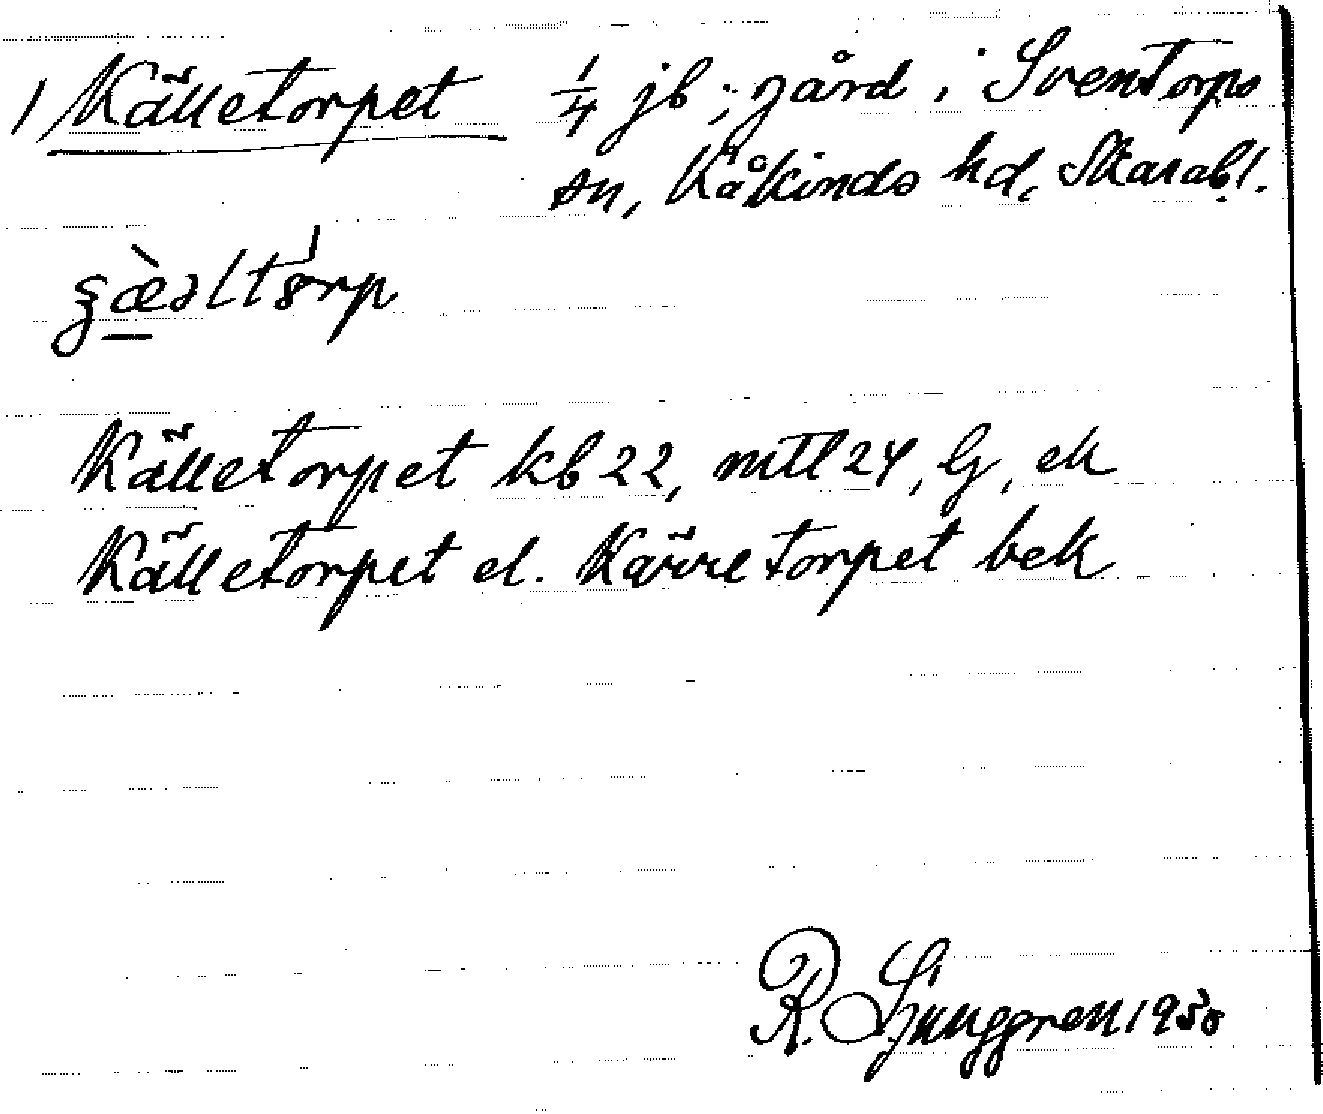 1 Källetorpet 1/4 jb; gård i Sventorps
sn, Kåkinds hd, Skarab.l.
Källetorpet kb 22, mtl 24, G, ek
Källetorpet el. Kärretorpet bek
R. Ljunggren 1950